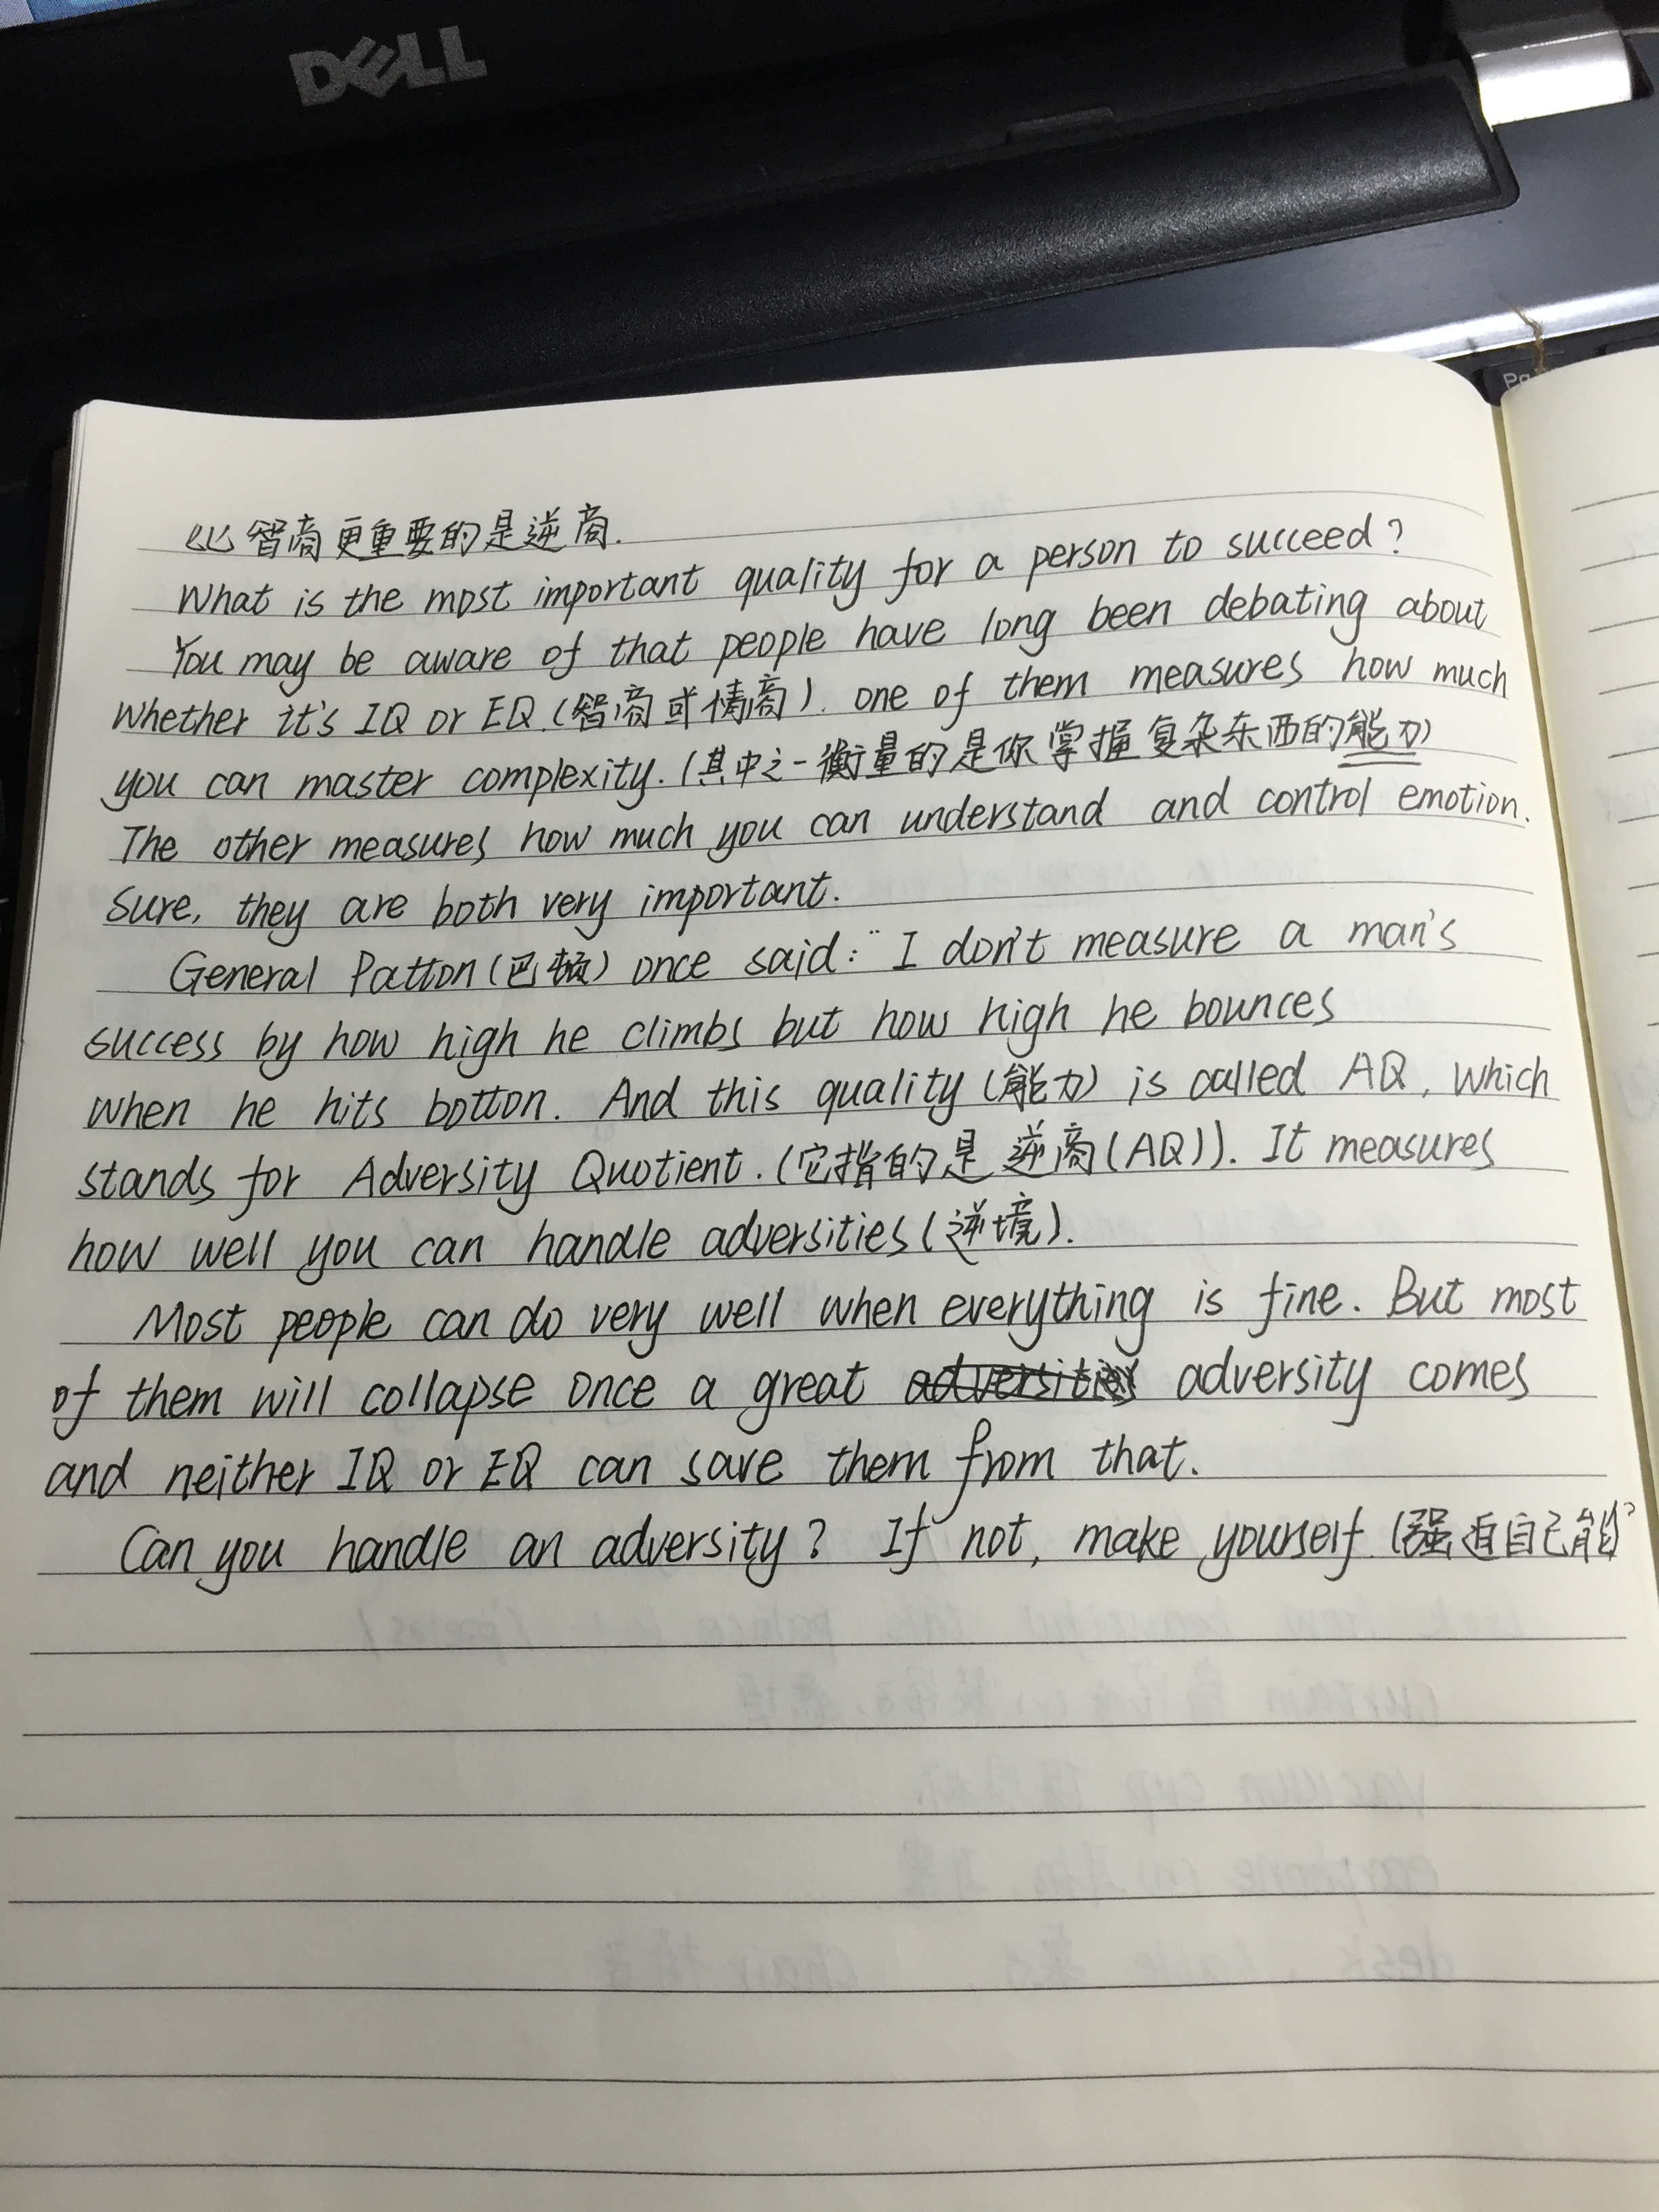 DELL
Pa
比智商更重要的是逆商.
What is the most important quality for a person to succeed?
You may be aware of that people have long been debating about
whether it's IQ or EQ.(智商或情商). one of them measures how much
you can master complexity.(其中之一衡量的是你掌握复杂东西的能力)
The other measures how much you can understand and control emotion.
Sure, they are both very important.
General Patton(巴顿) once said: "I don't measure a man's
success by how high he climbs but how high he bounces
when he hits botton. And this quality (能力) is called AQ, which
stands for Adversity Quotient.(它指的是逆商(AQ)). It measures
how well you can handle adversities(逆境).
Most people can do very well when everything is fine. But most
of them will collapse once a great adversities adversity comes
and neither IQ or EQ can save them from that.
Can you handle an adversity? If not, make yourself.(强迫自己能)